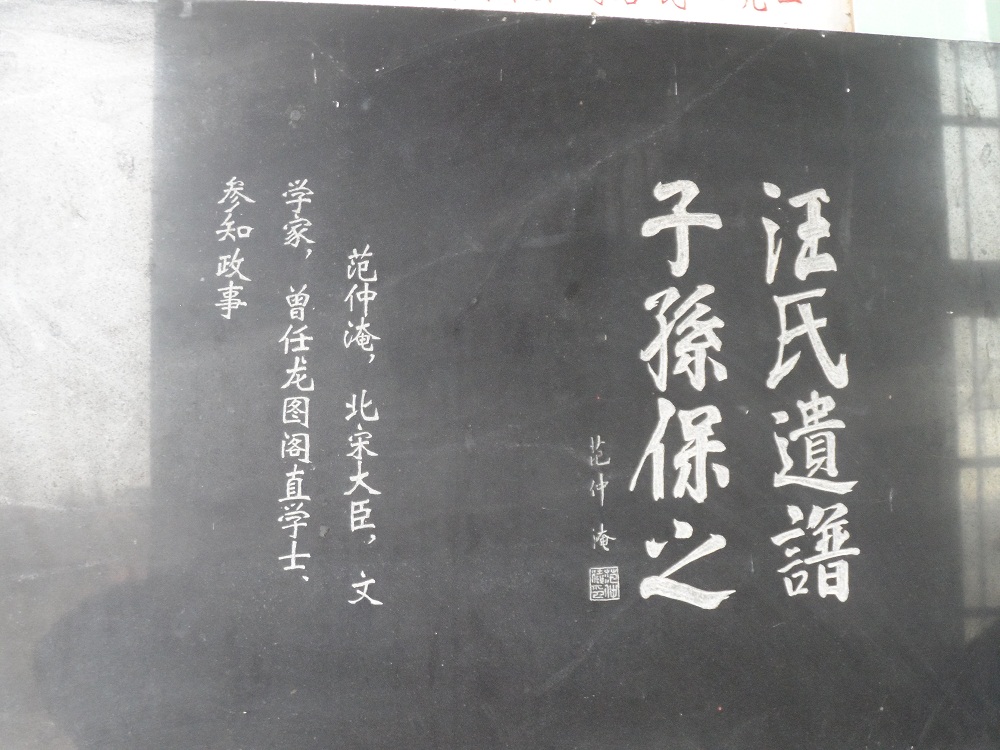 汪氏遺譜
子孫保之
范仲淹
范仲淹，北宋大臣，文
学家，曾任龙图阁直学士、
参知政事